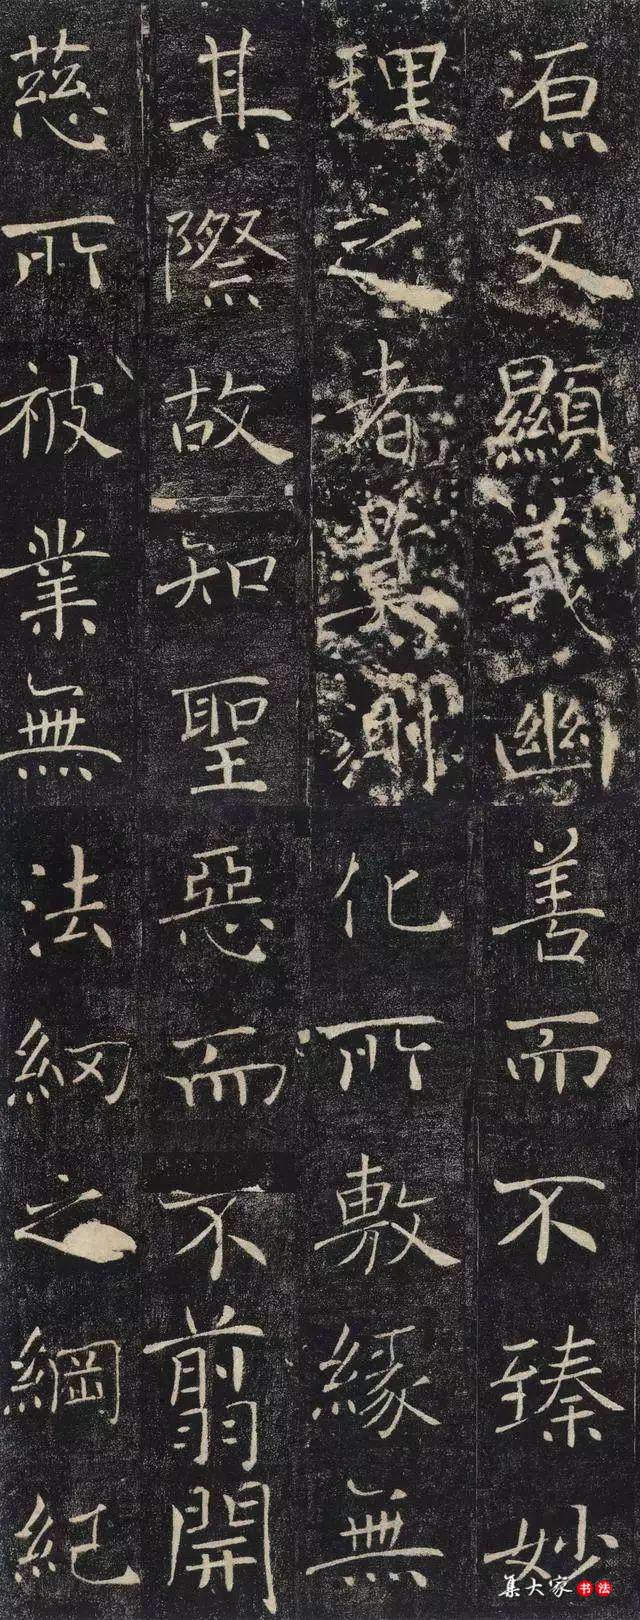 源文顯義幽
理之者莫測
其際故知聖
慈所被業無
善而不臻妙
化所敷緣無
惡而不翦開
法網之綱紀
集大家书法